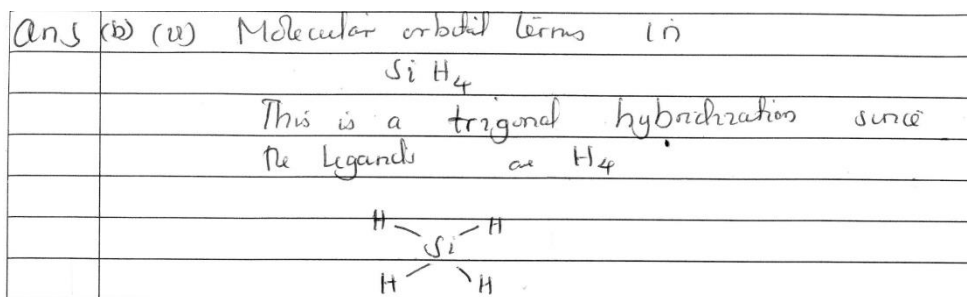 Ans (b) (ii) Molecular orbital terms in
SiH₄
This is a trigonal hybridization since
the ligands are H₄
H H
Si
H H